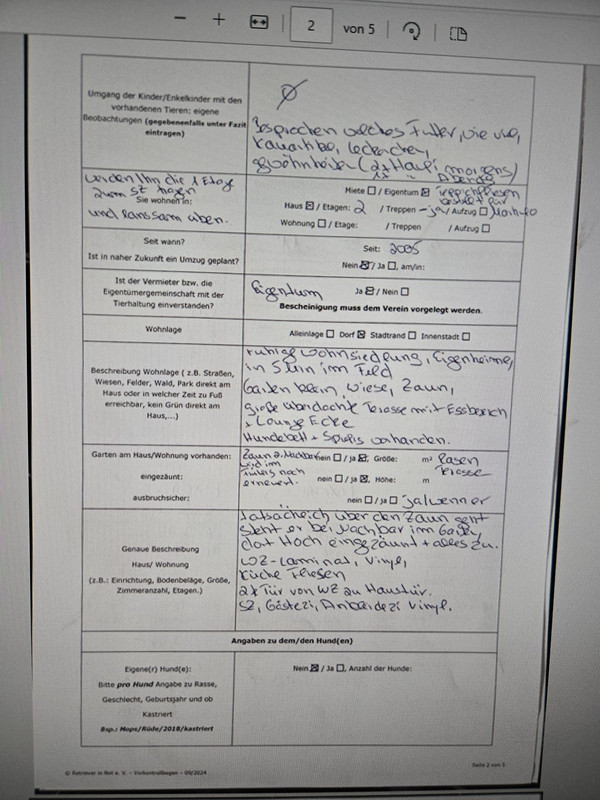 2 von 5
Umgang der Kinder/Enkelkinder mit den
vorhandenen Tieren; eigene
Beobachtungen (gegebenenfalls unter Fazit
eintragen)
Ø
Besprochen welches Futter, wie viel,
Kauartikel, Leckerchen,
gewöhnheiten (2x Hauf, morgens)
Abends
werden Ihm die 1 Etage
zum SZ tragen
und langsam üben.
Sie wohnen in:
Miete ☐ / Eigentum ☒ Treppenfliesen
bestellt für
Haus ☒ / Etagen: 2 / Treppen - ja / Aufzug ☐
Wohnung ☐ / Etage: / Treppen / Aufzug ☐
Seit wann?
Ist in naher Zukunft ein Umzug geplant?
Seit: 2005
Nein ☒ / Ja ☐, am/in:
Ist der Vermieter bzw. die
Eigentümergemeinschaft mit der
Tierhaltung einverstanden?
Eigentum Ja ☒ / Nein ☐
Bescheinigung muss dem Verein vorgelegt werden.
Wohnlage
Alleinlage ☐ Dorf ☒ Stadtrand ☐ Innenstadt ☐
Beschreibung Wohnlage ( z.B. Straßen,
Wiesen, Felder, Wald, Park direkt am
Haus oder in welcher Zeit zu Fuß
erreichbar, kein Grün direkt am
Haus,...)
ruhige Wohnsiedlung, Eigenheime,
in 5 min im Feld
Garten klein, Wiese, Zaun,
große überdachte Terasse mit Essbereich
+ Lounge Ecke
Hundebett + Spielis vorhanden.
Garten am Haus/Wohnung vorhanden:
eingezäunt:
ausbruchsicher:
Zaun z. Nachbar
wird im
noch
erneuert.
nein ☐ / ja ☒; Größe: m² Rasen
Terasse
nein ☐ / ja ☒, Höhe: m
nein ☐ / ja ☐ ja/wenn er
Genaue Beschreibung
Haus/ Wohnung
(z.B.: Einrichtung, Bodenbeläge, Größe,
Zimmeranzahl, Etagen.)
tatsächlich über den Zaun geht
steht er bei Nachbar im Garten,
dort Hoch eingezäunt + alles zu.
WZ-Laminat, Vinyl,
Küche Fliesen
2x Tür von WZ zu Haustür.
SZ, Gästezi, Arbeidezi Vinyl.
Angaben zu dem/den Hund(en)
Eigene(r) Hund(e):
Bitte pro Hund Angabe zu Rasse,
Geschlecht, Geburtsjahr und ob
Kastriert
Bsp.: Mops/Rüde/2018/kastriert
Nein ☒ / Ja ☐, Anzahl der Hunde:
© Retriever in Not e. V. – Vorkontrollbogen – 09/2024
Seite 2 von 5